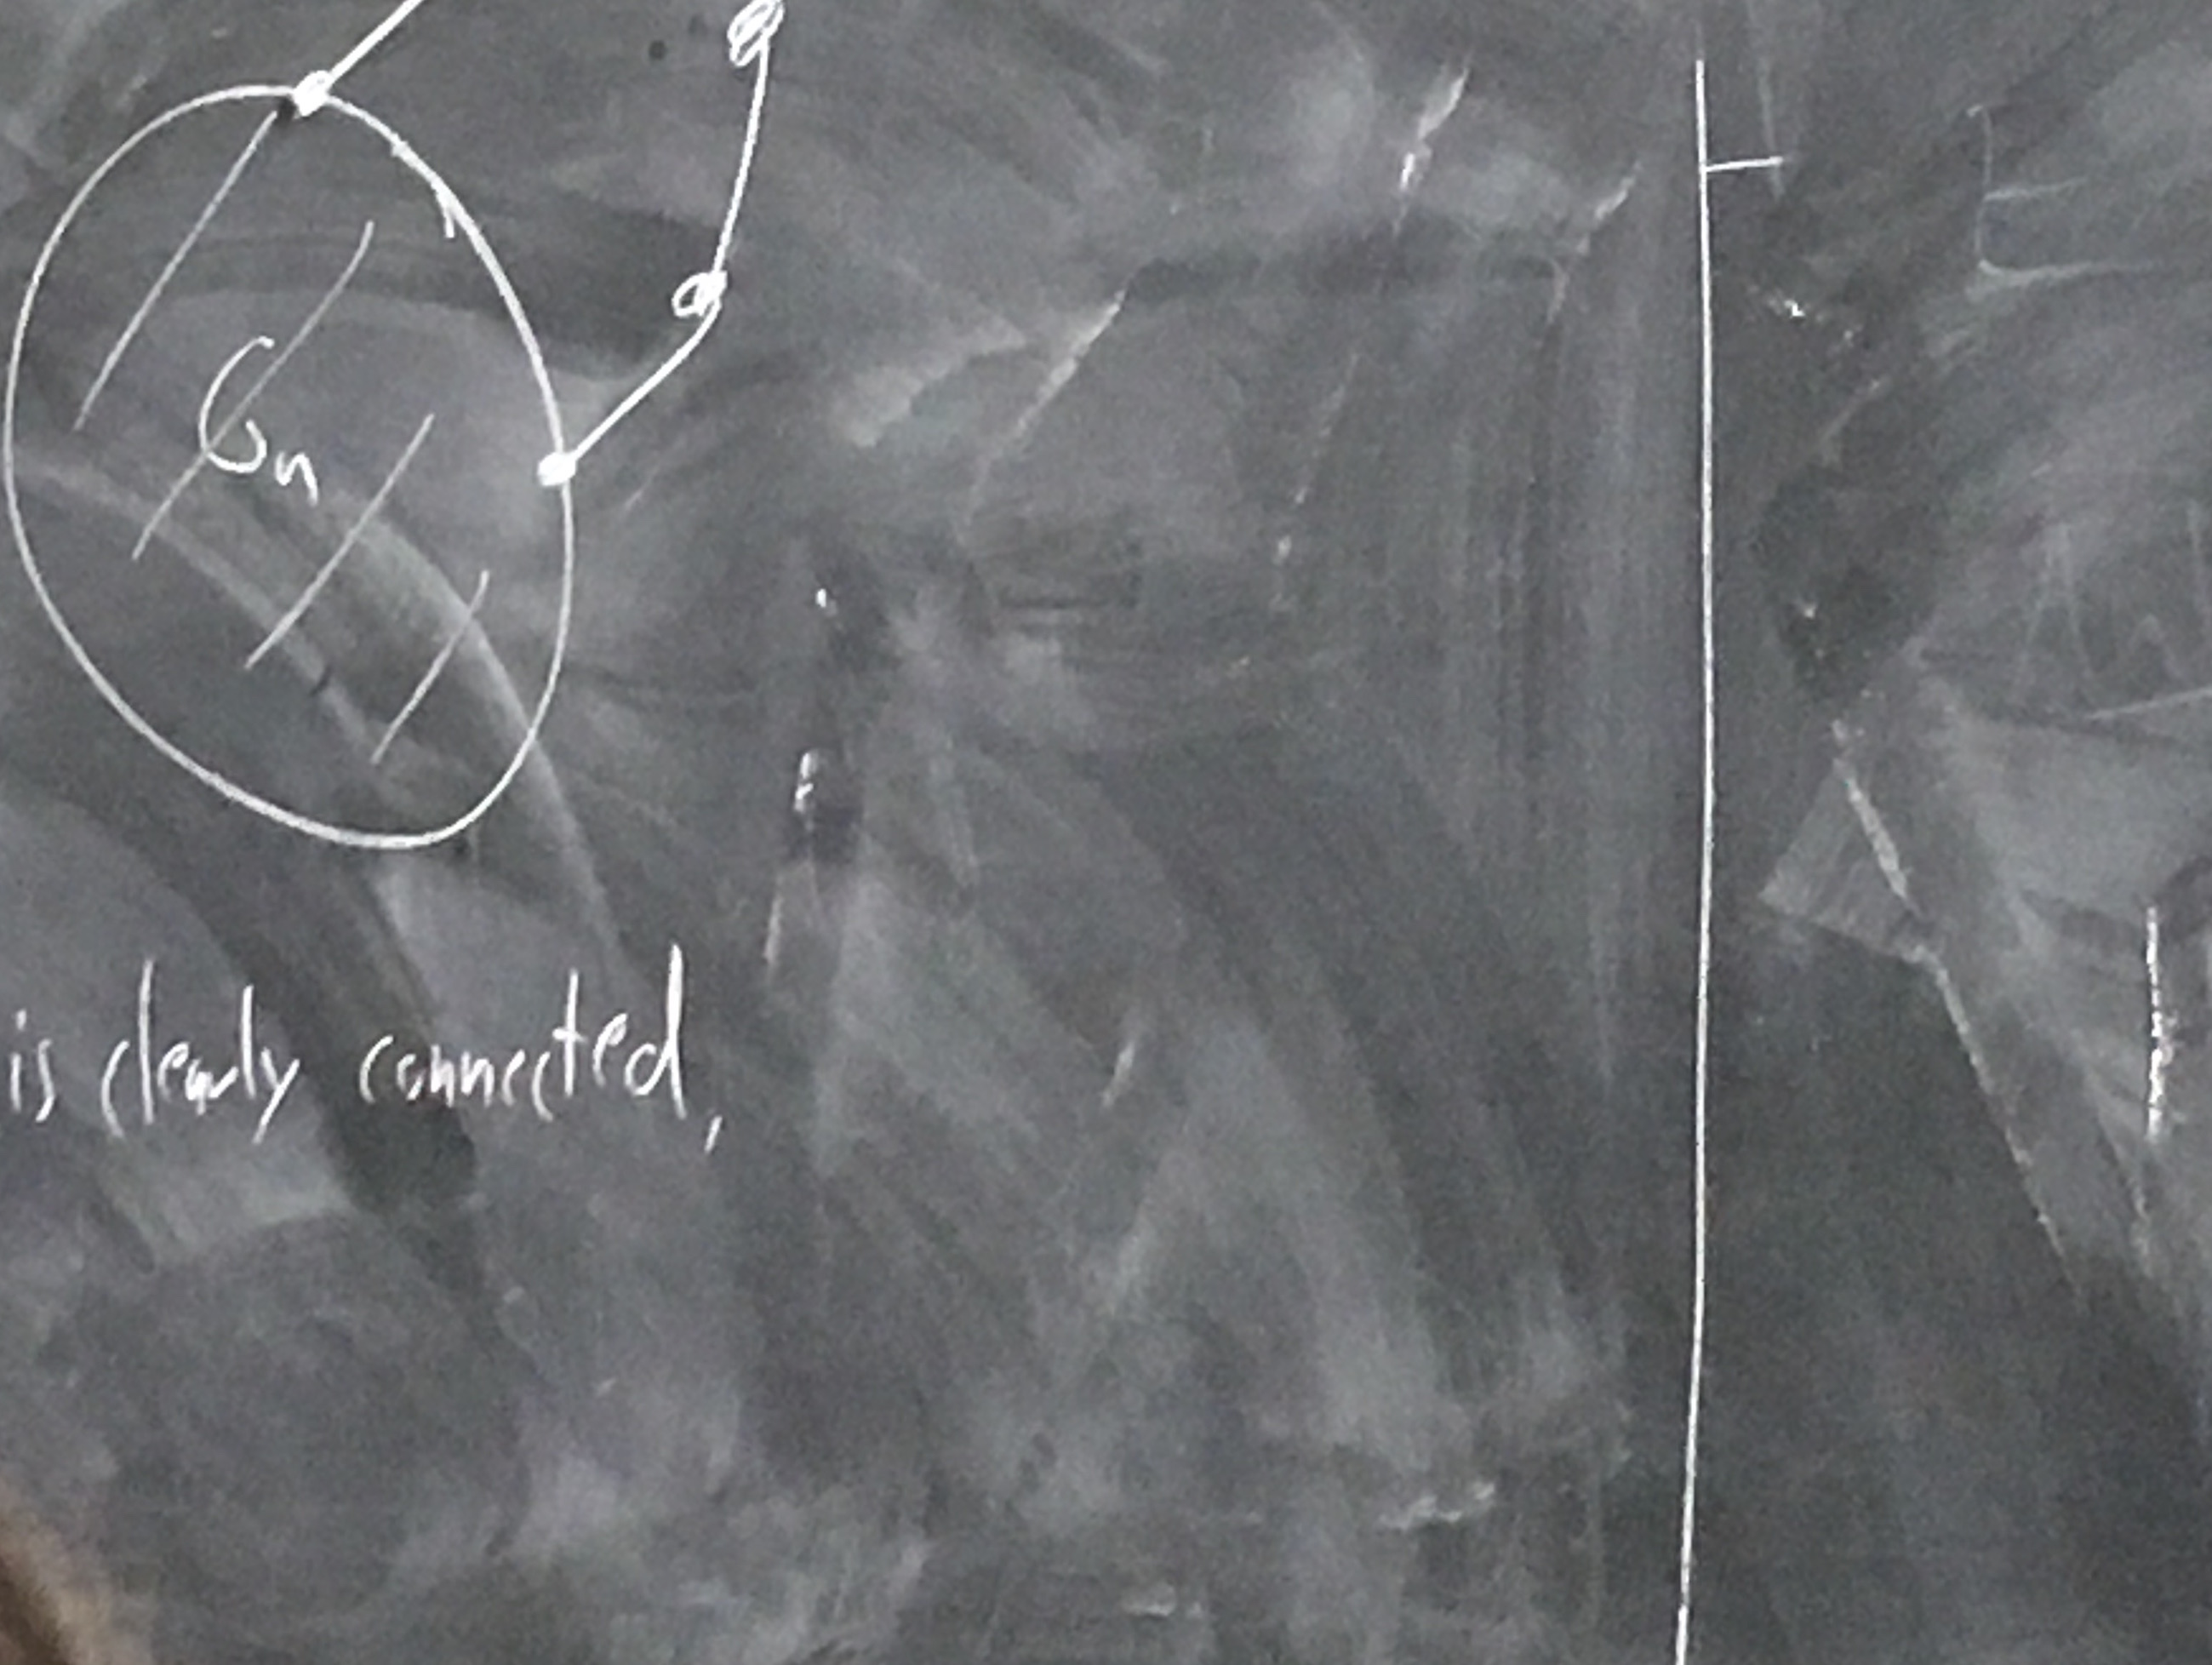 Gn
is clearly connected,